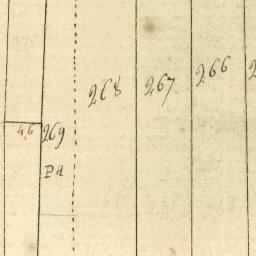 268
267
266
2
46
269